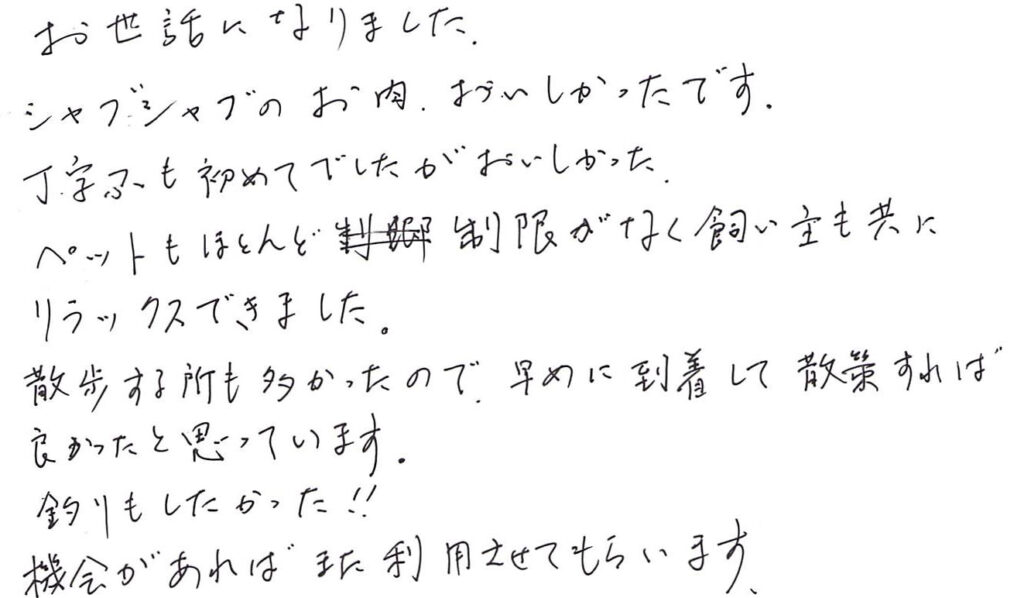 お世話になりました.
シャブシャブのお肉.おいしかったです.
丁字ふも初めてでしたがおいしかった.
ペットもほとんど 制限がなく飼い主も共に
リラックスできました。
散歩する所も多かったので.早めに到着して散策すれば
良かったと思っています.
釣りもしたかった!!
機会があればまた利用させてもらいます.